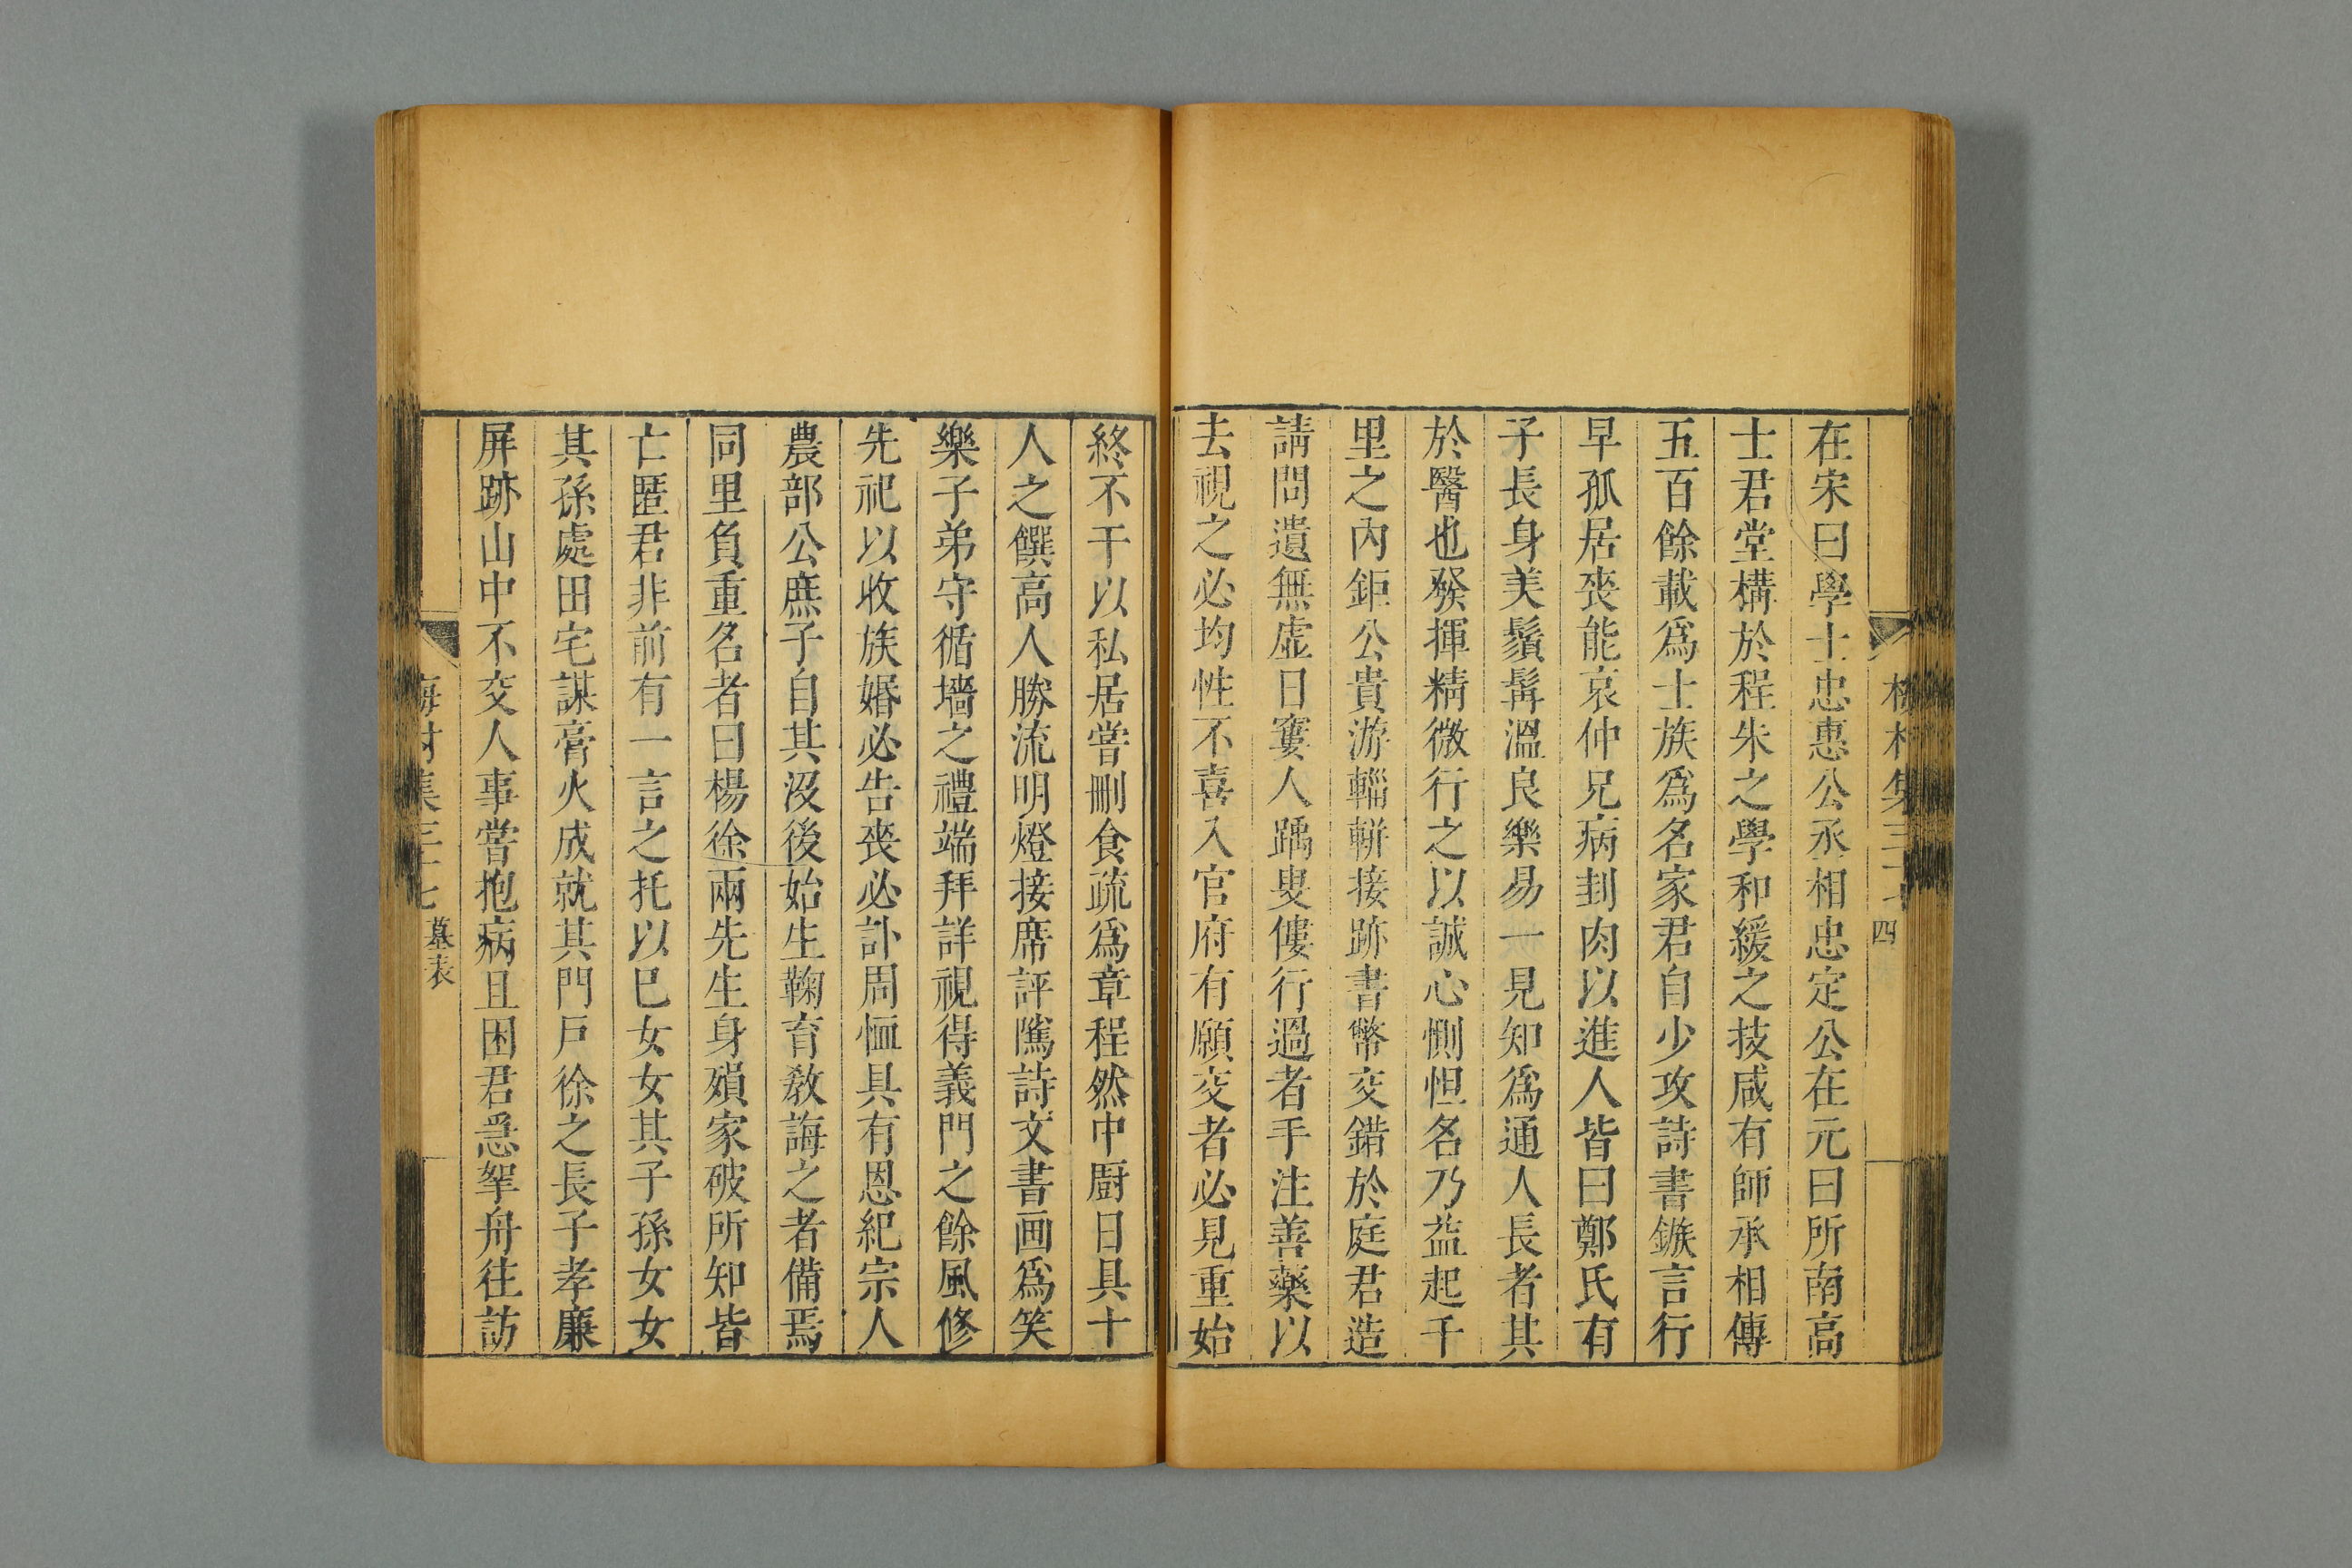 在宋曰學士忠惠公丞相忠定公在元曰所南高
士君堂構於程朱之學和緩之技咸有師承相傳
五百餘載爲士族爲名家君自少攻詩書鏃言行
早孤居喪能哀仲兄病刲肉以進人皆曰鄭氏有
子長身美鬚髯溫良樂易一見知爲通人長者其
於醫也發揮精微行之以誠心惻怛名乃益起千
里之內鉅公貴游輜軿接跡書幣交錯於庭君造
請問遺無虛日窶人踽叟僂行過者手注善藥以
去視之必均性不喜入官府有願交者必見重始
終不干以私居嘗刪食疏爲章程然中廚日具十
人之饌高人勝流明燈接席評隲詩文書画爲笑
樂子弟守循墻之禮端拜詳視得義門之餘風修
先祀以收族婚必告喪必訃周恤具有恩紀宗人
農部公庶子自其沒後始生鞠育教誨之者備焉
同里負重名者曰楊徐兩先生身殞家破所知皆
亡匿君非前有一言之托以巳女女其子孫女女
其孫處田宅謀膏火成就其門戶徐之長子孝廉
屏跡山中不交人事嘗抱病且困君急拏舟往訪
四
梅村集三十七
墓表